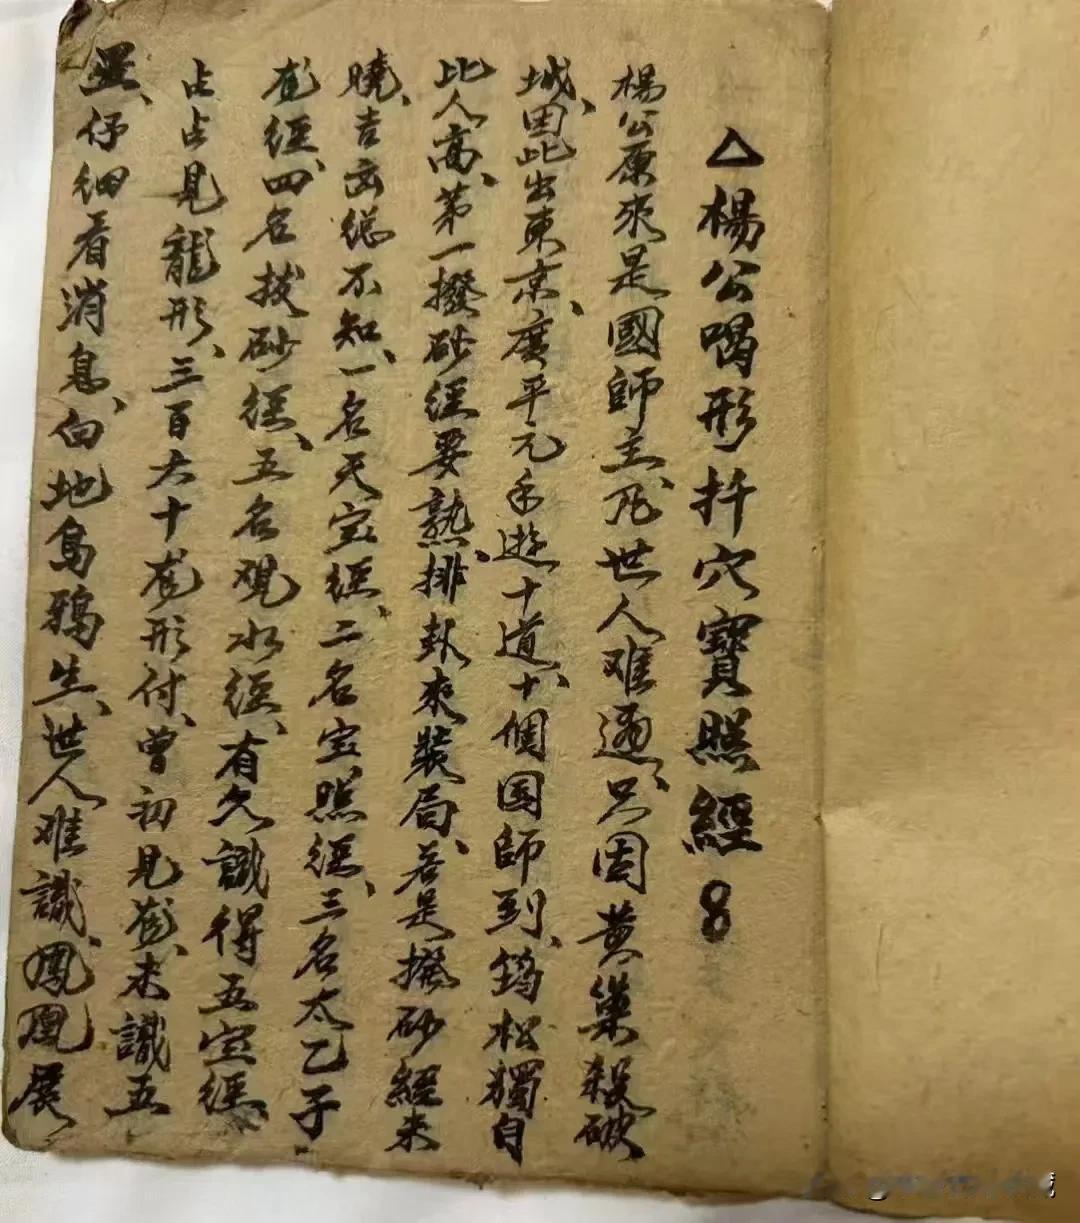 △楊公喝形扦穴寶照經8
楊公原來是國師主、死世人难逓、只因黄巢殺破
城、因此出東京、廣平元年遊十道、十個国師到、筠松獨自
比人高、第一撥砂經要熟、排卦來裝局、若是撥砂經未
曉、吉凶總不知、一名天宝經、二名宝照經、三名太乙子
经、四名拨砂經、五名观水經、有人識得五宝經、
占占見龍形、三百六十形付、曾初見、未識五
星、仔细看消息、向地鳥鴉生、世人难識、鳳凰展